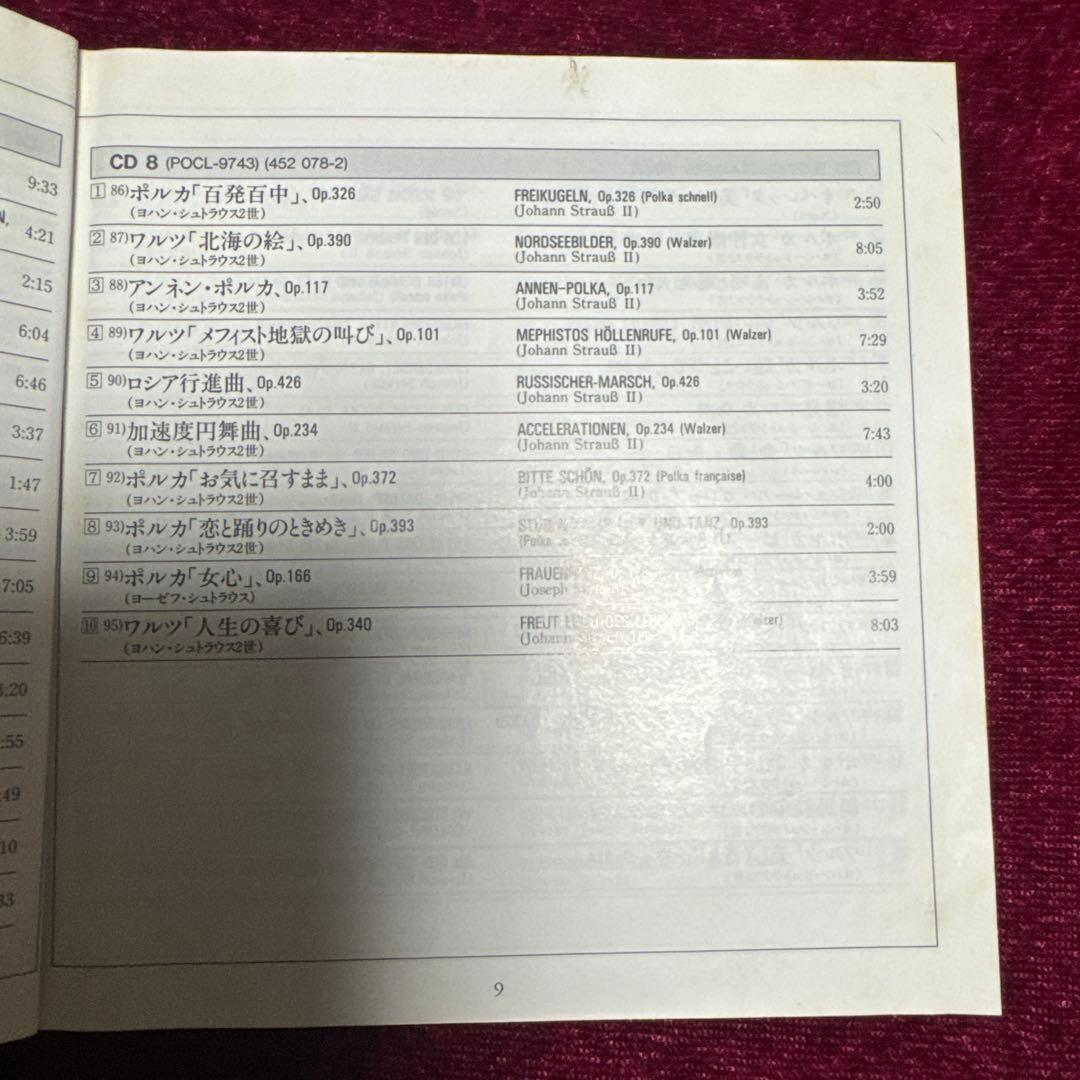 9:33
4:21
2:15
6:04
6:46
3:37
1:47
3:59
7:05
6:39
:20
:55
:49
10
33
CD 8 (POCL-9743) (452 078-2)
1 86)ポルカ「百発百中」、Op.326 FREIKUGELN, Op.326 (Polka schnell) 2:50
(ヨハン・シュトラウス2世) (Johann Strauß II)
2 87)ワルツ「北海の絵」、Op.390 NORDSEEBILDER, Op.390 (Walzer) 8:05
(ヨハン・シュトラウス2世) (Johann Strauß II)
3 88)アンネン・ポルカ、Op.117 ANNEN-POLKA, Op.117 3:52
(ヨハン・シュトラウス2世) (Johann Strauß II)
4 89)ワルツ「メフィスト地獄の叫び」、Op.101 MEPHISTOS HÖLLENRUFE, Op.101 (Walzer) 7:29
(ヨハン・シュトラウス2世) (Johann Strauß II)
5 90)ロシア行進曲、Op.426 RUSSISCHER-MARSCH, Op.426 3:20
(ヨハン・シュトラウス2世) (Johann Strauß II)
6 91)加速度円舞曲、Op.234 ACCELERATIONEN, Op.234 (Walzer) 7:43
(ヨハン・シュトラウス2世) (Johann Strauß II)
7 92)ポルカ「お気に召すまま」、Op.372 BITTE SCHÖN, Op.372 (Polka française) 4:00
(ヨハン・シュトラウス2世) (Johann Strauß II)
8 93)ポルカ「恋と踊りのときめき」、Op.393 UND TANZ, Op.393 2:00
(ヨハン・シュトラウス2世) (Polka
9 94)ポルカ「女心」、Op.166 3:59
(ヨーゼフ・シュトラウス) (Joseph
10 95)ワルツ「人生の喜び」、Op.340 FREUT DES 8:03
(ヨハン・シュトラウス2世) (Johann
9